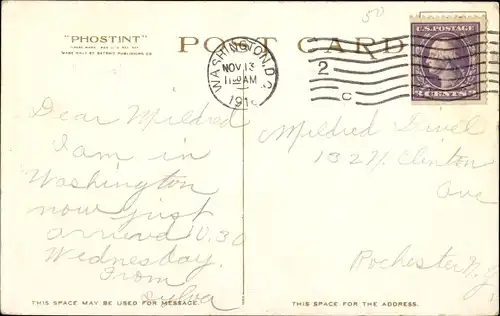 50
"PHOSTINT"
POST CARD
MADE ONLY BY DETROIT PUBLISHING CO.
WASHINGTON, D.C.
NOV 13
1130 AM
191
2
C
U.S. POSTAGE
3 CENTS 3
Dear Mildred
I am in
Washington
now just
arrived 10.30
Wednesday.
From
Sylva
Mildred
132 N. Clinton
Ave
Rochester N.Y.
THIS SPACE MAY BE USED FOR MESSAGE.
THIS SPACE IS FOR THE ADDRESS.